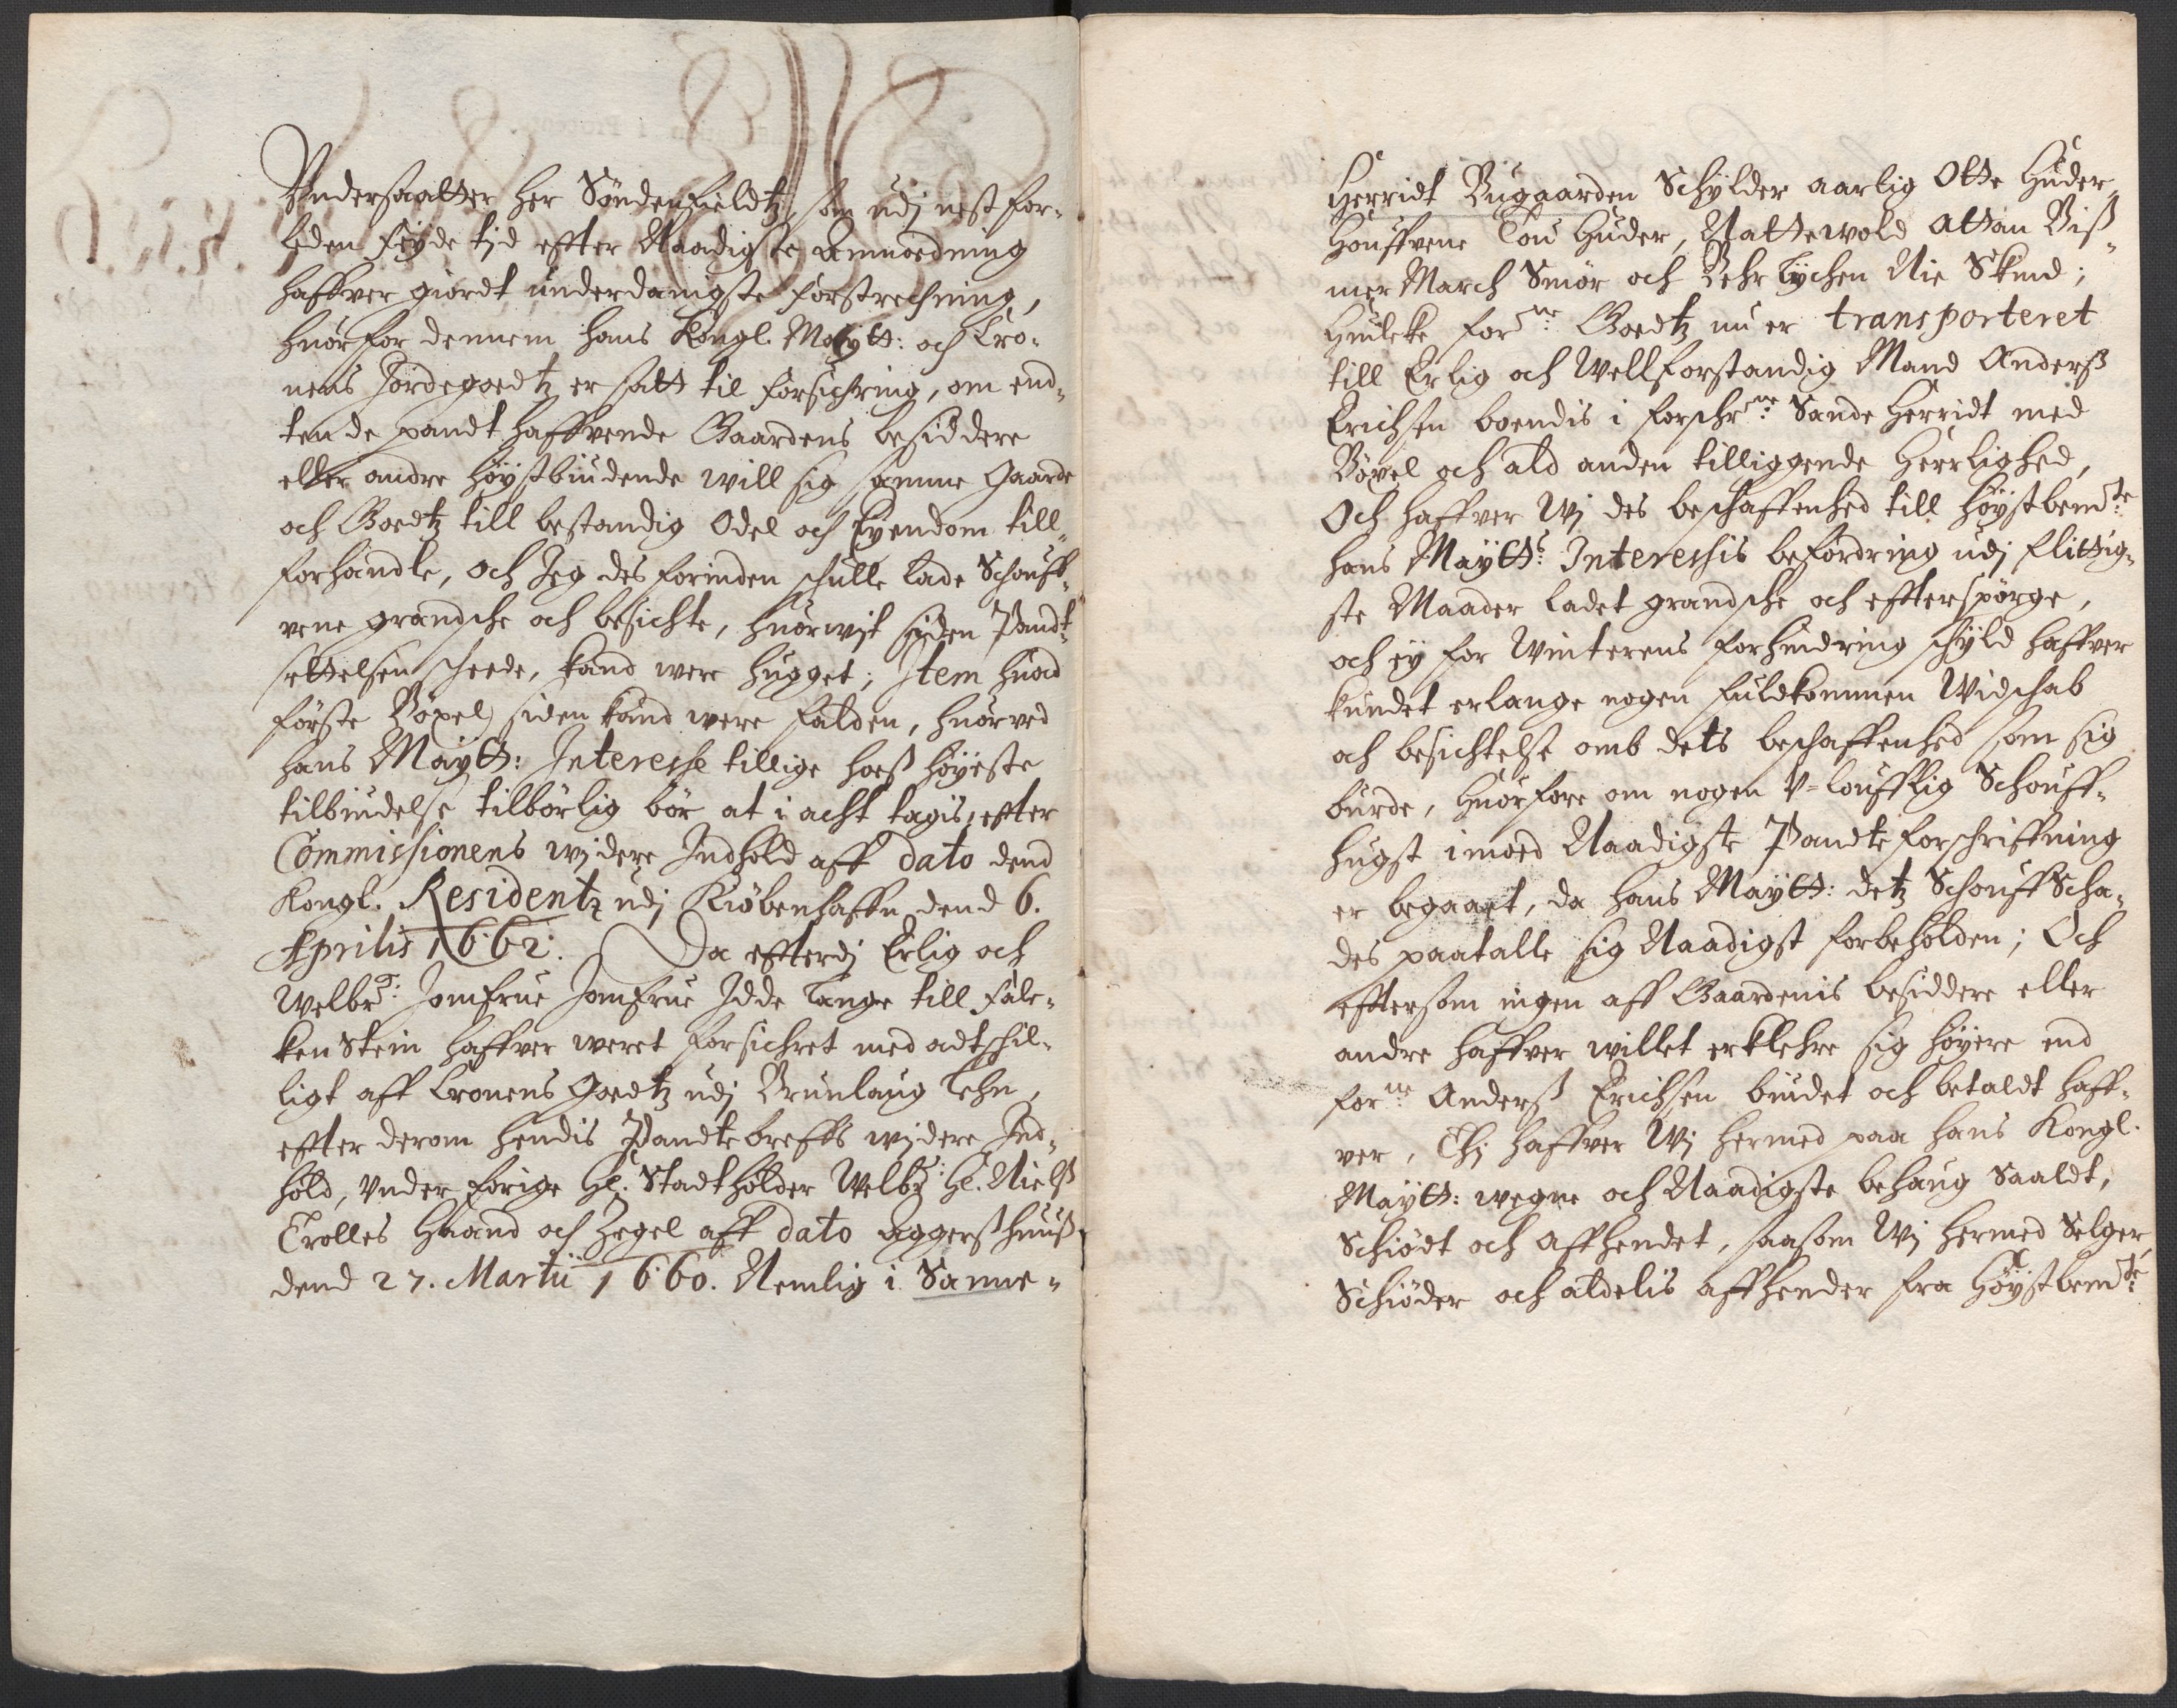 Undersaatter her Søndenfieldtz, som udj nest for-
leden feyde tjd effter Naadigste Annordning
haffver giordt underdanigste forstrechning,
huorfor dennem hans Kongl. Maytt: och Cro-
nens Jordegoedtz er satt til forsichring, om end-
ten de pandt haffvende Gaardens besiddere
eller andre høystbiudende will sig samme Gaarde
och Goedtz till bestandig Odel och Eyendom till-
forhandle, och Jeg des forinden schulle lade Schouff-
vene grandsche och besichte, huorwit siden Pandt-
settelsen scheede, kand were hugget; Item huad
første Bøxel siden kand were falden, huorved
hans Maytt: Interesse tillige hoeß høyeste
tilbiudelse tilbørlig bør at i acht tagis, effter
Commissionens widere Indhold aff dato dend
Kongl. Residentz udj Kiøbenhaffn dend 6.
Aprilis 1662. Da efterdj Erlig och
Welbr: Jomfrue Jomfrue Idde Lange till Fale-
ken Stein haffver weret forsichret med adtschil-
ligt aff Cronens Goedtz udj Brunlaug Lehn,
effter derom hendis Pandtebreffs widere Ind-
hold, Under forige Hl. Stadtholder Welbr: Hl. Nielß
Trolles Haand och Zegel aff dato Aggerßhuuß
dend 27. Martii 1660. Nemlig i Sanne-
Herridt Bugaarden Schylder aarlig Otte Huder,
Houffvene Tou Huder, Nattewold Attan Biß-
mer March Smør och Zehrlychen Nie Skind;
Huilcke forne: Goedtz nu er transporteret
till Erlig och Wellforstandig Mand Anderß
Erichsen boendis i forschrne: Sande Herridt med
Bøxel och ald anden tilliggende Herrlighed,
Och haffver Wj des beschaffenhed till Høystbemte:
hans Maytts: Interessis befordring udj flittig-
ste Maader ladet grandsche och efterspørge,
och ey for Winterens forhindring schyld haffver
kundet erlange nogen fuldkommen Widschab
och besichtelse omb dets beschaffenhed som sig
burde, Huorfore om nogen U-loufflig Schouff-
hugst imoed Naadigste Pandteforschriffning
er begaaet, da hans Maytt: detz Schouff Scha-
des paatalle sig Naadigst forbeholden; Och
efftersom ingen aff Gaardenis besiddere eller
andre haffver willet erklehre sig høyere end
forne: Anderß Erichsen biudet och betaldt haff-
ver, Thj haffver Wj hermed paa hans Kongl.
Maytt: wegne och Naadigste behaug Saaldt,
Schiødt och affhendet, saasom Wj hermed Selger,
Schiøder och aldelis affhender fra Høystbemte: